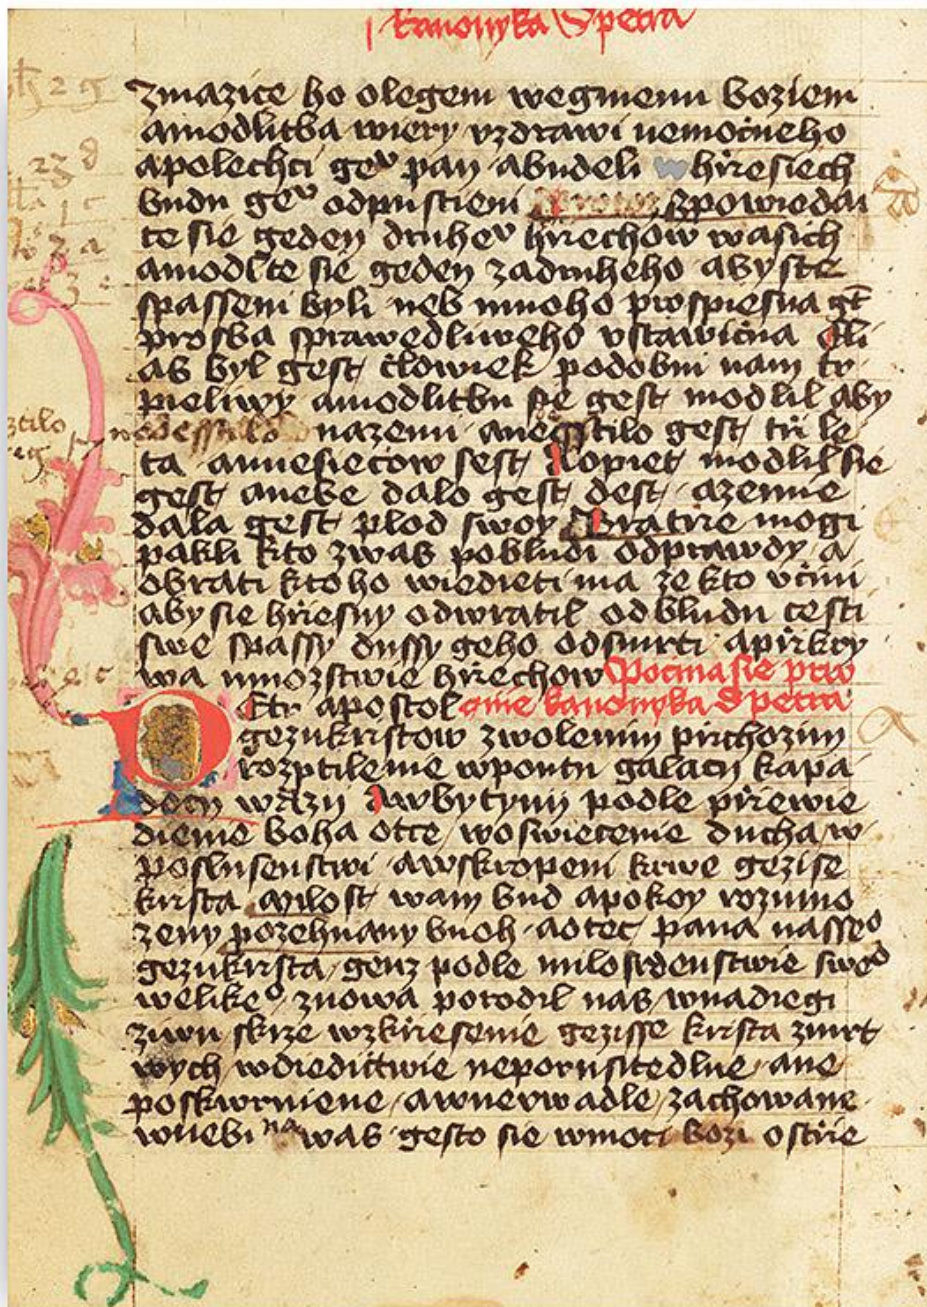 kanonyka S petra
zmazice ho olegem wegmenu boziem
amodlitba wiery vzdrawi nemocneho
apolechci geͮ pan abudeli w hřiesiech
budu geͮ odpustieni zpowiedai
te sie geden druheͮ hřiechow wasich
amodlte sie geden zadruheho abyste
spasseni byli neb mnoho prospiesna gt̄
prosba sprawedliweho vstawična Eli
as byl gest člowiek podobni nam tr
pieliwy amodlitbu sie gest modlil aby
nazemi anegsstilo gest tři le
ta amiesiecow sest Aopiet modlil sie
gest anebe dalo gest dest azemie
dala gest plod swoy Bratrie mogi
pakli kto zwas pobludi odprawdy a
obrati kto ho wiedieti ma ze kto včini
aby sie hřiesny odwratil odbludu cesti
swe spassy dussy geho odsmrti apřikry
wa mnozstwie hřiechow Počina sie prw
Etr apostol gnie kanonyka S petra
gezukristow zwolenim přichozim
rozptilenie wpontu galacij kapa
docy wazij Awbytynij podle přewie
dienie boha otce woswiecenie ducha w
poslusenstwi awskropeni krwe gezise
krista Milost wam bud apokoy rozmno
zeny pozehnany buoh aotec pana nasseͦ
gezukrista genz podle milosrdenstwie sweͦ
welikeͦ znowa porodil nas wnadiegi
ziwu skrze wzkřiesenie gezisse krista zmrt
wych wdiedictwie neporusitedlne ane
poskwrniene awnevwadle zachowane
wnebi na was gesto sie wmoci bozi ostřie